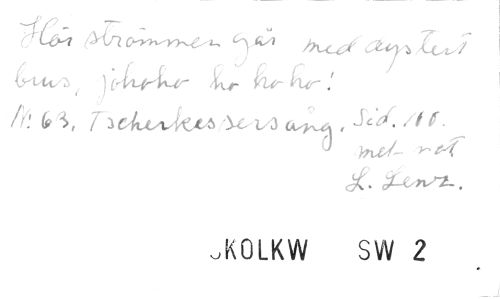 Här strömmen går med dystert
brus, johoho ho ho ho!
N: 63. Tscherkessersång. Sid. 100.
met not
L. Lenz.
JKOLKW SW 2